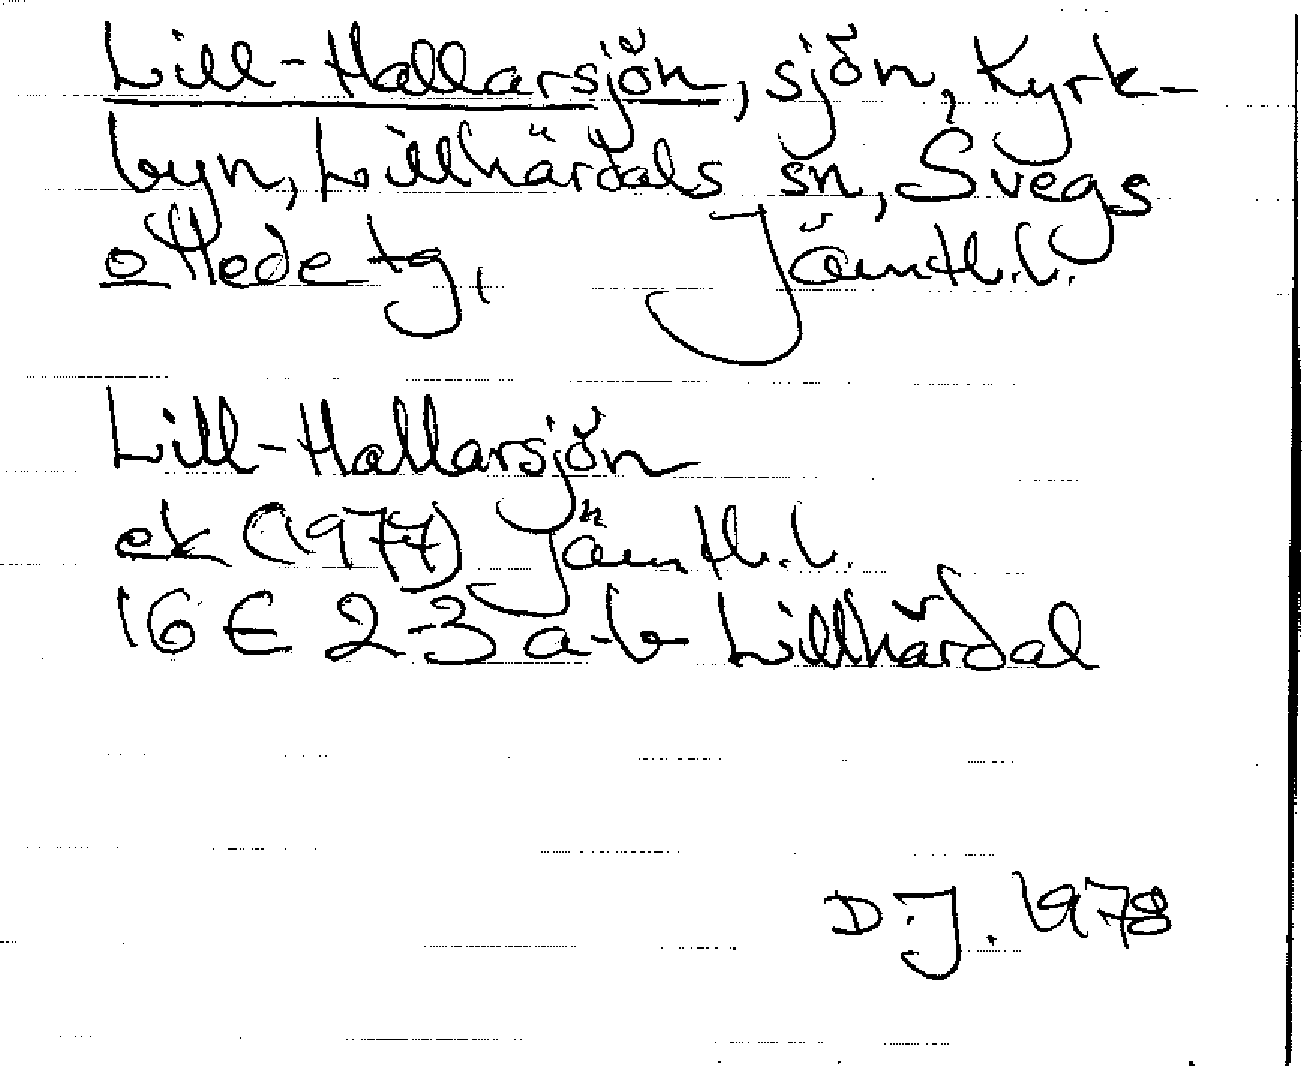 Lill-Hallarsjön, sjön, Kyrk-
byn, Lillhärdals sn, Svegs
o Hede tg, Jämtl.l.
Lill-Hallarsjön
ek (1977) Jämtl.l.
16 E 2-3 a-b Lillhärdal
D.J. 1978